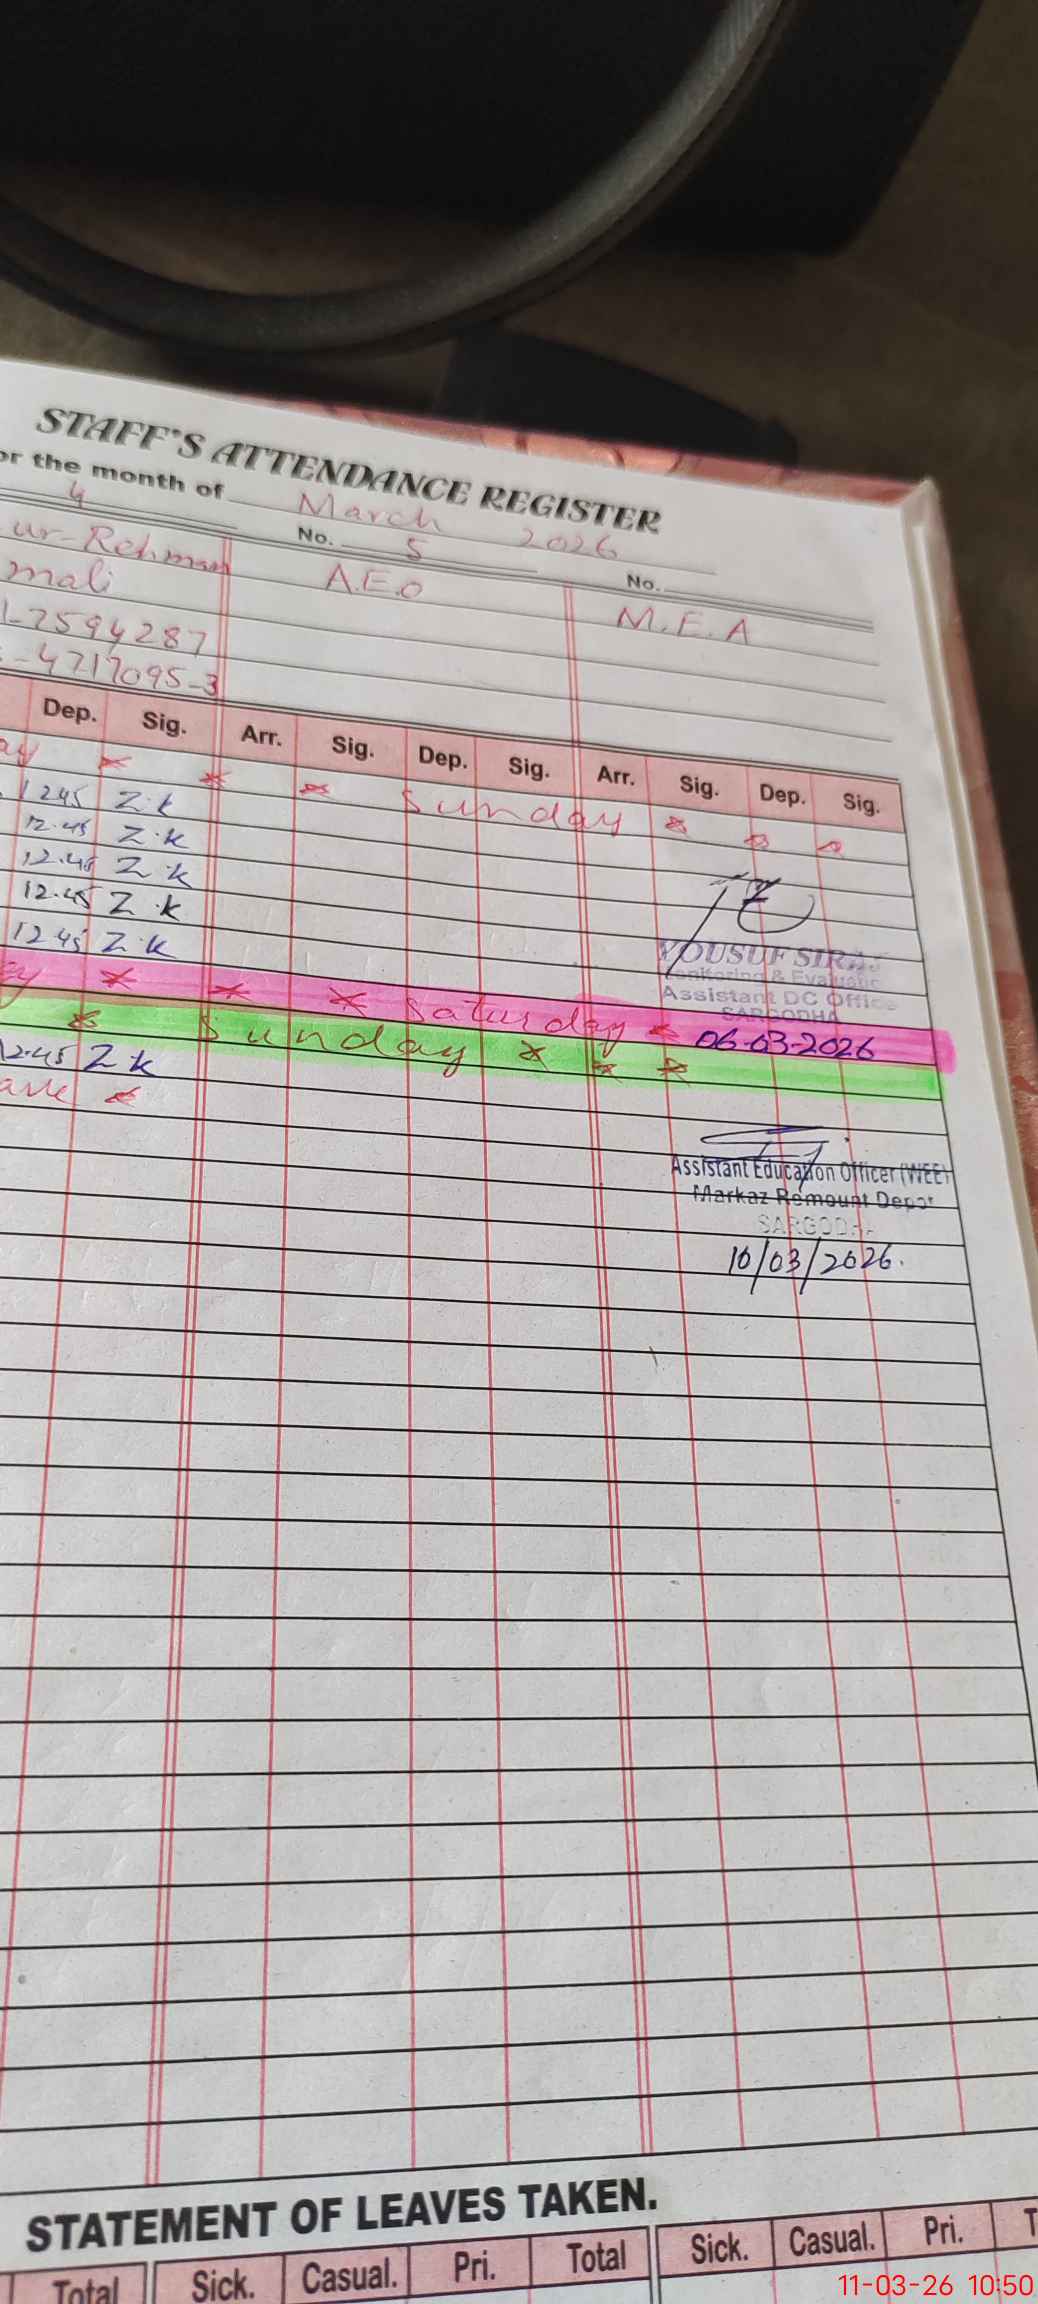 STAFF'S ATTENDANCE REGISTER
or the month of March 2026
4 No. 5 No.
ur-Rehman A.E.O M.E.A
mali
1-7594287
-4717095-3
Dep. Sig. Arr. Sig. Dep. Sig. Arr. Sig. Dep. Sig.
ay Sunday
1245 Z.K
12.45 Z.K
12.45 Z.K
12.45 Z.K
1245 Z.K
YOUSUF SIRAJ
Monitoring & Evaluation
Assistant DC Office
SARGODHA
ay Saturday 06-03-2026
Sunday
12.45 Z K
Assistant Education Officer (WEE)
Markaz Remount Depot
SARGODHA
10/03/2026.
STATEMENT OF LEAVES TAKEN.
Total Sick. Casual. Pri. Total Sick. Casual. Pri. T
11-03-26 10:50